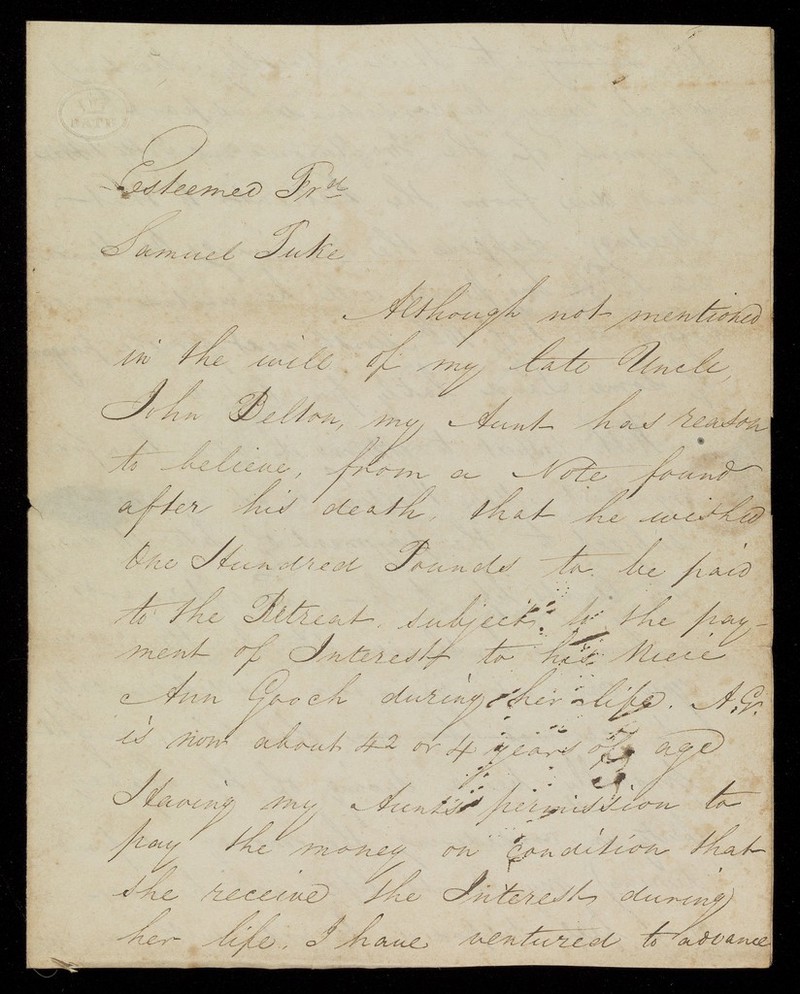 Esteemed Frd
Samuel Tuke
Although not mentioned
in the will of my late Uncle,
John Pelton, my Aunt has reason
to believe, from a Note found
after his death, that he wished
One Hundred Pounds to be paid
to the Retreat, subject to the pay-
ment of Interest to his Niece
Ann Gooch during her life. A.G.
is now about 42 or 4 years of age
Having my Aunt's permission to
pay the money on condition that
she receive the Interest during
her life. I have ventured to advance